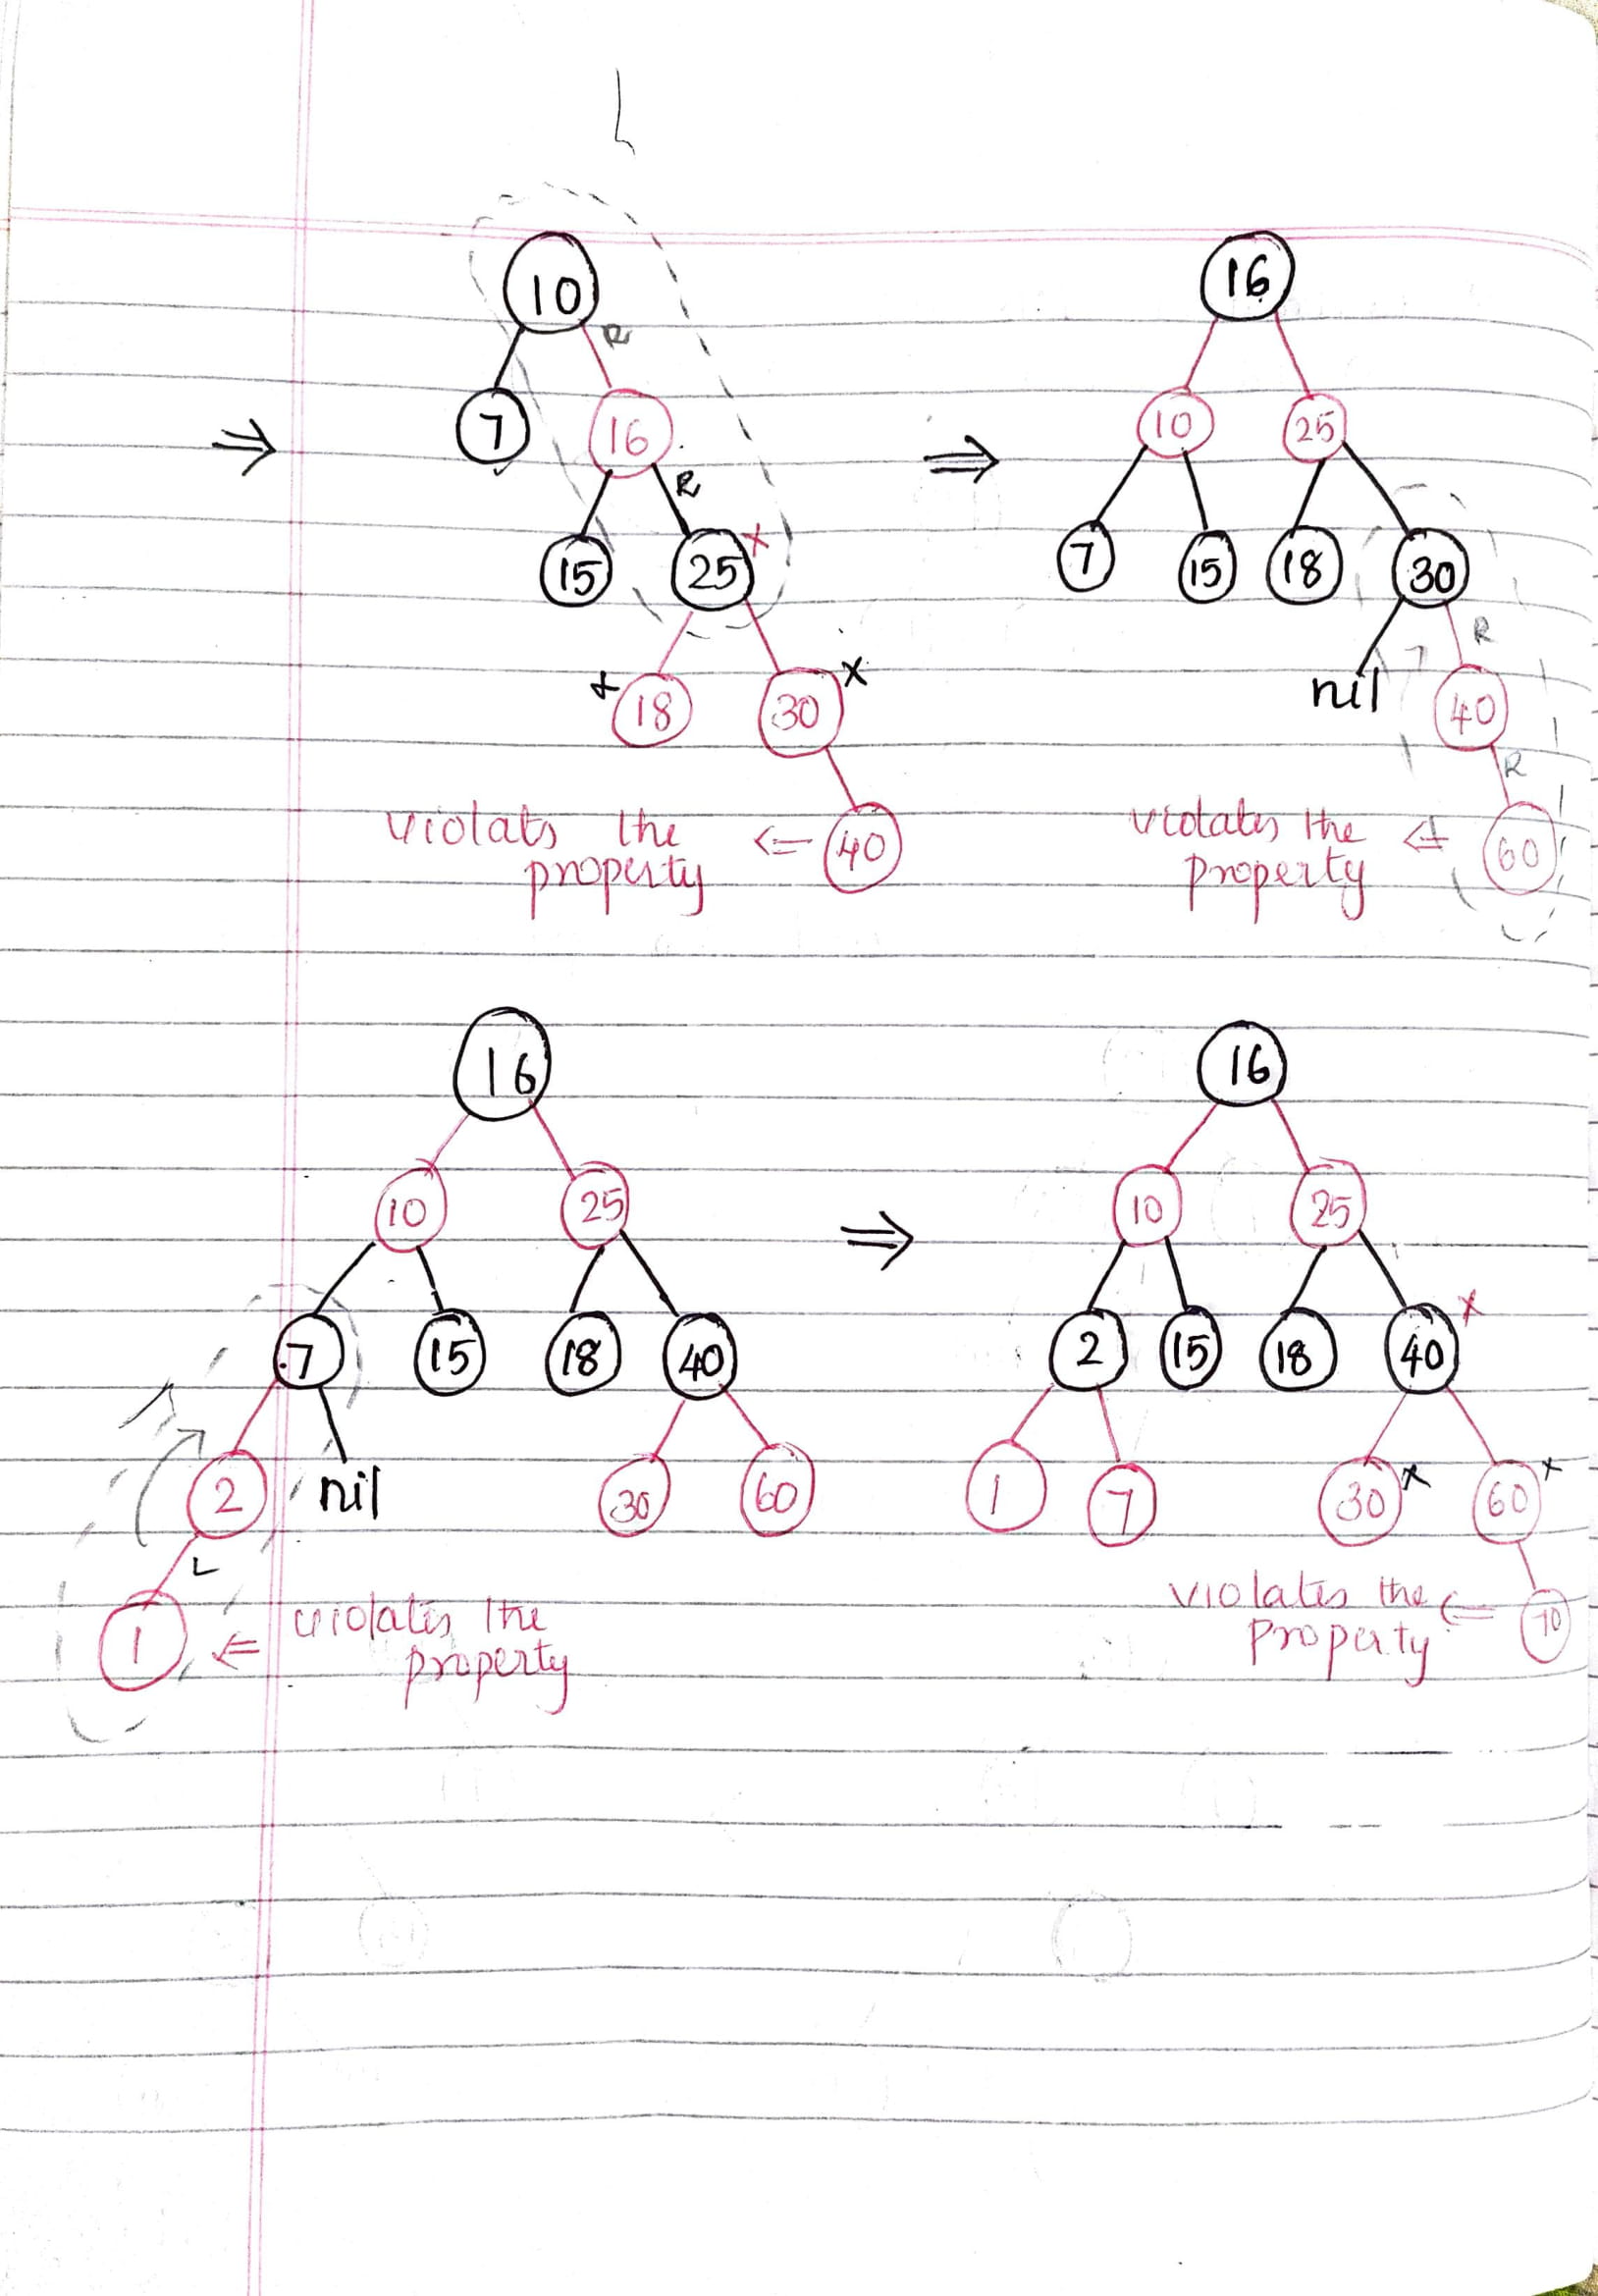 10
R
7 16
R
15 25 x
x 18 30 x
violats the
property <= 40
=>
=>
16
10 25
7 15 18 30
R
nil 40
R
violates the
property <= 60
16
10 25
7 15 18 40
2 nil 30 60
L
1 <= violates the
property
=>
16
10 25
2 15 18 40 x
1 7 30 x 60 x
violates the <= 70
Property